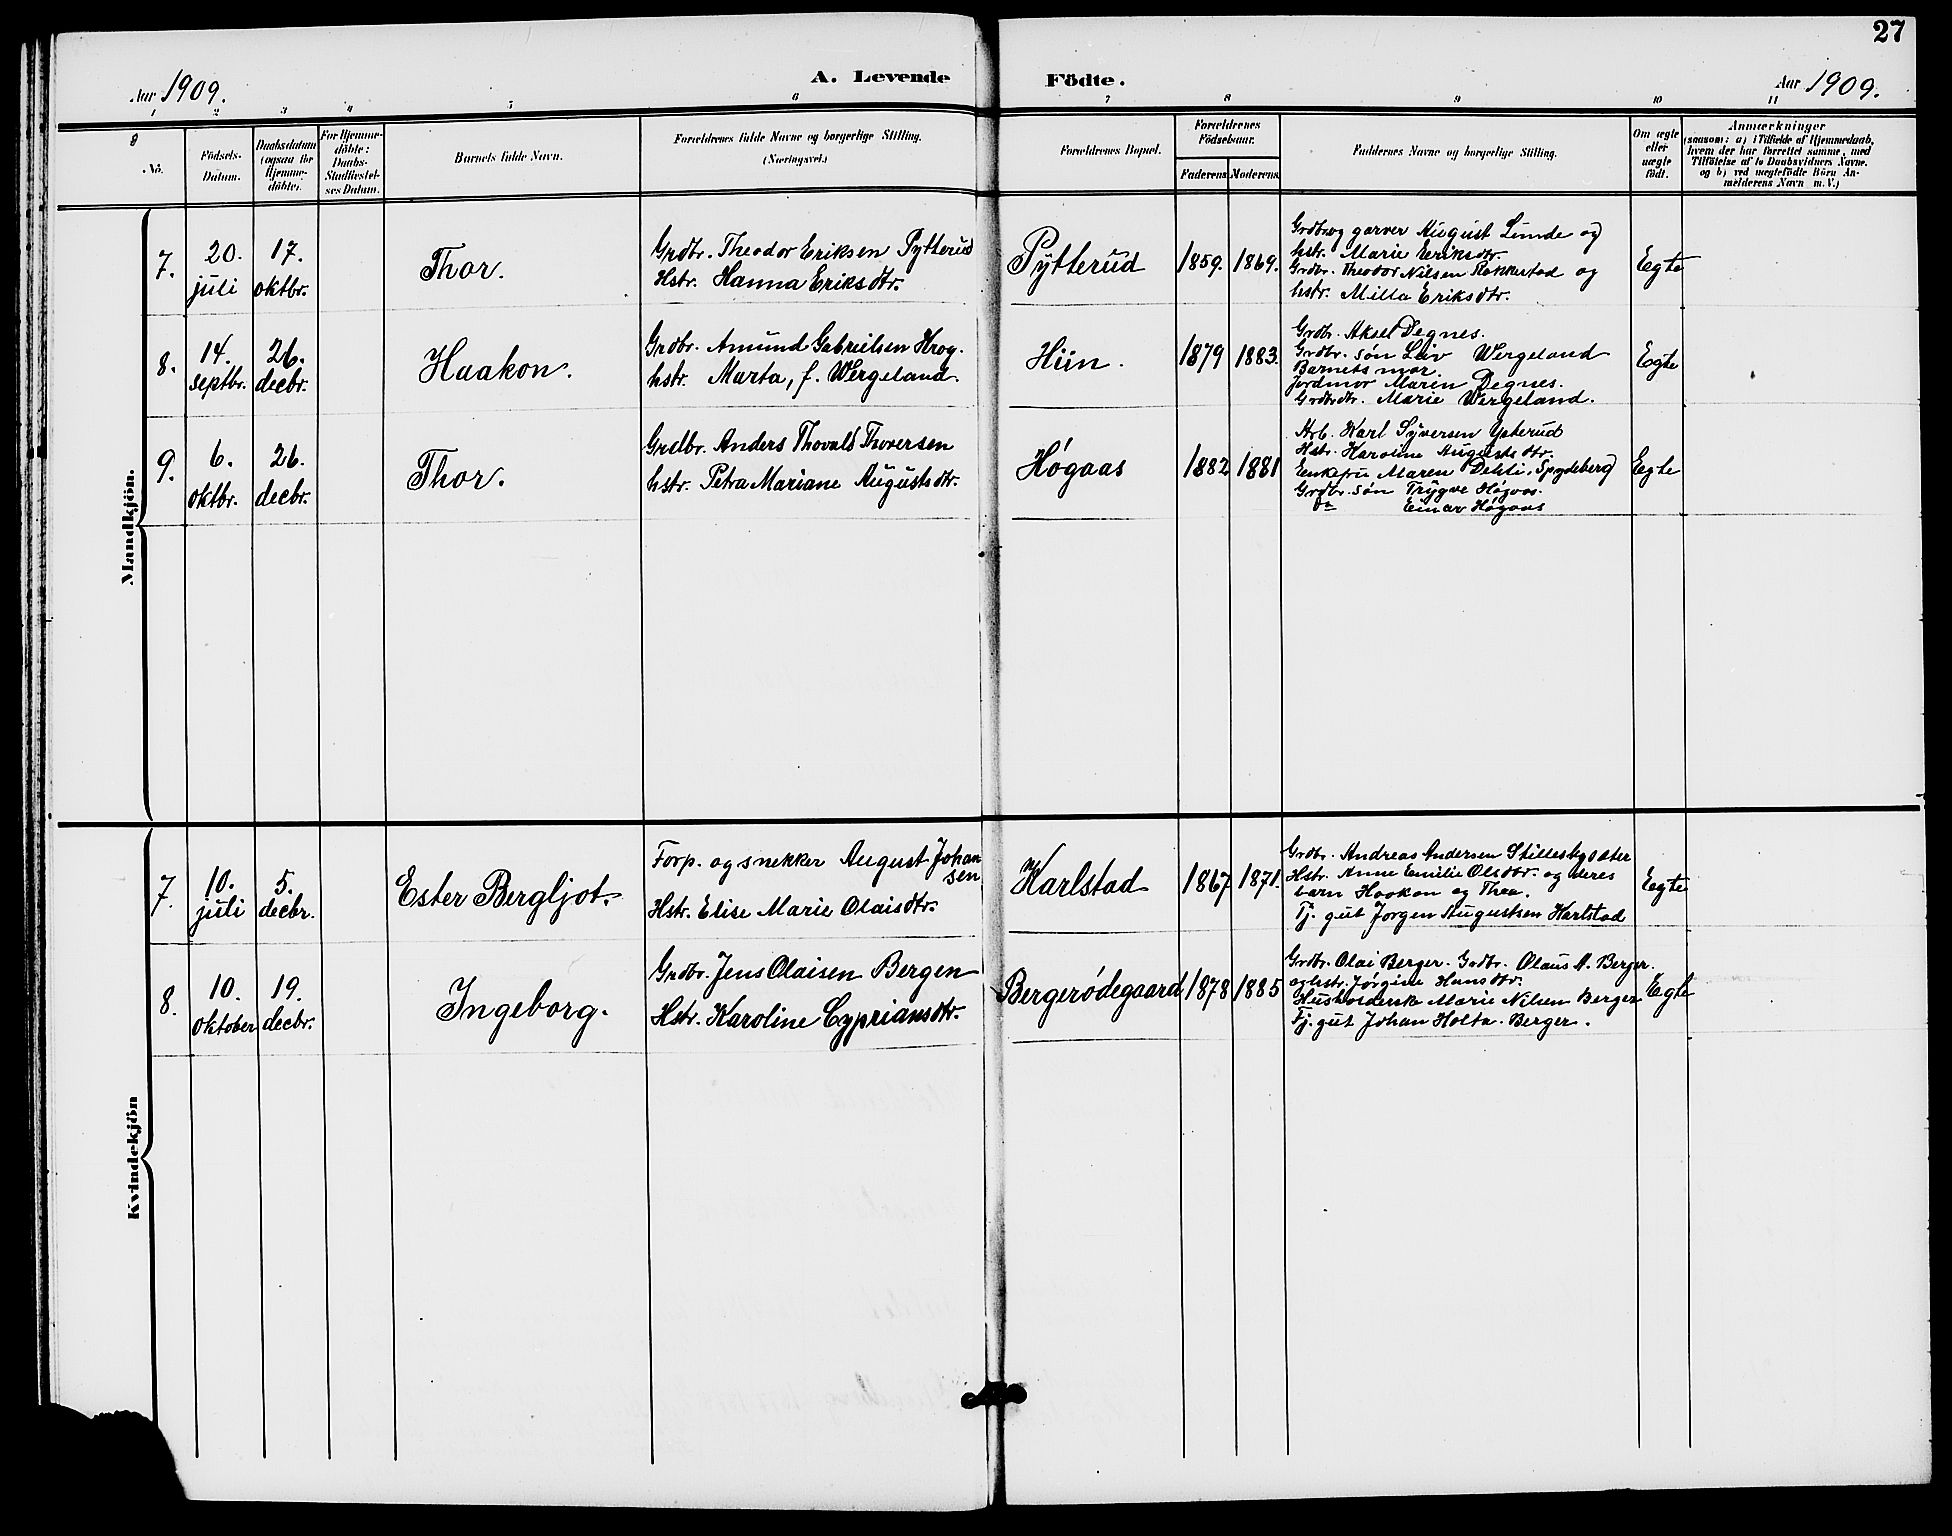 27
Aar 1909.
A. Levende Födte.
Aar 1909.
1 2 3 4 5 6 7 8 9 10 11
No.
Födsels-Datum.
Daabsdatum (ogsaa for Hjemmedöbte).
For Hjemmedöbte: Daabs-Stadfæstelses Datum.
Barnets fulde Navn.
Forældrenes fulde Navne og borgerlige Stilling.
(Næringsvei.)
Forældrenes Bopæl.
Forældrenes Födselsaar.
Faderens Moderens
Faddernes Navne og borgerlige Stilling.
Om ægte eller uægte födt.
Anmærkninger
(saasom: a) i Tilfælde af Hjemmedaab,
hvem der har forrettet samme, med
Tilföielse af to Daabsvidners Navne.
og b) ved uægtefödte Börn An-
melderens Navn m. V.)
Mandkjön.
7. 20. juli 17. oktbr. Thor.
Grdbr. Theodor Eriksen Pytterud
Hstr. Hanna Eriksdtr.
Pytterud 1859. 1869.
Grdbr. og garver August Lunde og
hstr. Marie Eriksdtr.
Grdbr. Theodor Nilsen Rakkestad og
hstr. Milla Eriksdtr.
Egte
8. 14. septbr. 26. decbr. Haakon.
Grdbr. Amund Gabrielsen Krog.
hstr. Marta, f. Wergeland.
Hiin. 1879 1883.
Grdbr. Aksel Degnes.
Grdbr. søn Leiv Wergeland
Barnets mor.
Jordmor Maren Degnes.
Grdbrdtr. Marie Wergeland.
Egte
9. 6. oktbr. 26. decbr. Thor.
Grdbr. Anders Thovald Thoversen
hstr. Petra Mariane Augustsdtr.
Høgaas 1882 1881
Arb. Karl Syversen Ysterud
Hstr. Karoline Augustsdtr.
Enkefru Maren Dehli, Spydeberg
Grdbr. søn Trygve Høgaas.
Do Einar Høgaas
Egte
Kvindekjön
7. 10. juli 5. decbr. Ester Bergljot.
Forp. og snekker August Johan
sen
Hstr. Elise Marie Olaisdtr.
Karlstad 1867 1871.
Grdbr. Andreas Andersen Stillesby østter
Hstr. Anne Emilie Olsdtr. og deres
barn Haakon og Thea.
Tj. gut Jørgen Augustsen Karlstad
Egte
8. 10. oktober 19. decbr. Ingeborg.
Grdbr. Jens Olaisen Bergen
Hstr. Karoline Cypriansdtr.
Bergerødegaard 1878 1885
Grdbr. Olai Berger. Grdbr. Olaus A. Berger.
og hstr. Jørgine Hansdtr.
Husholderske Marie Nilsen Berger
Tj. gut Johan Holta. Berger.
Egte